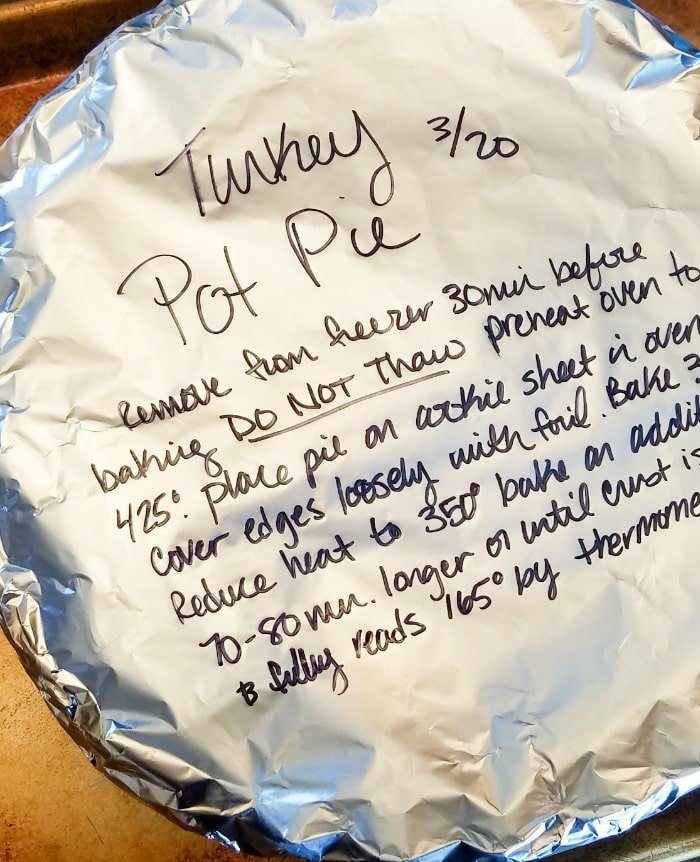 Turkey 3/20
Pot Pie
Remove from freezer 30min before
baking DO NOT Thaw preheat oven to
425°. Place pie on cookie sheet in oven
Cover edges loosely with foil. Bake 3
Reduce heat to 350° bake an addit
70-80 min. longer or until crust is
& reads 165° by thermome